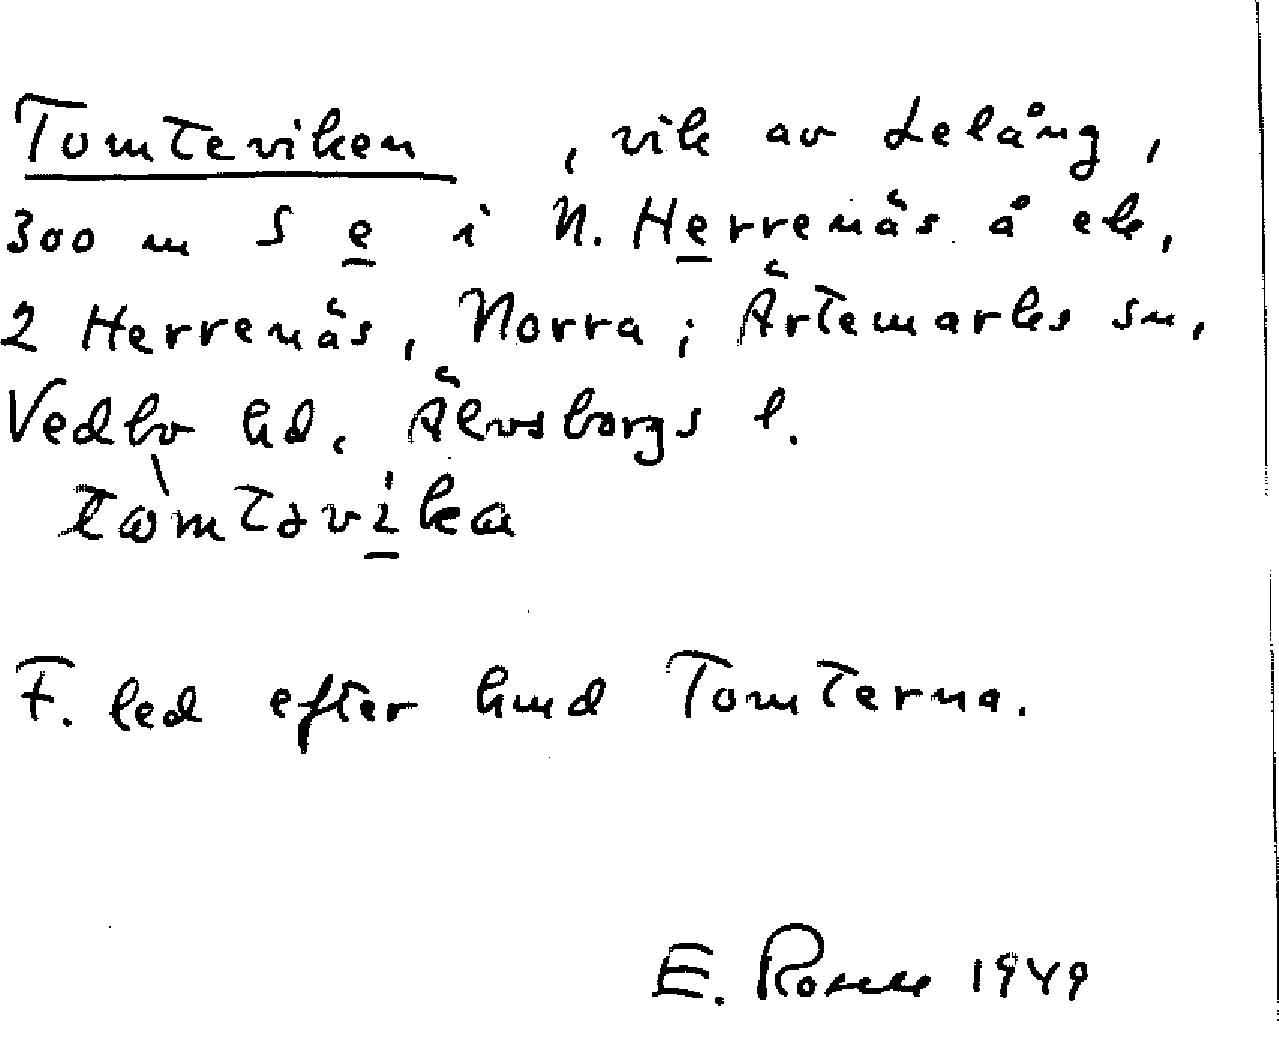 Tomteviken , vik av Lelång,
300 m S e i N. Herrenäs å ek.
2 Herrenäs, Norra; Ärtemarks sn,
Vedbo hd, Älvsborgs l.
tòmtəvika
F. led efter hmd Tomterna.
E. Rosell 1949